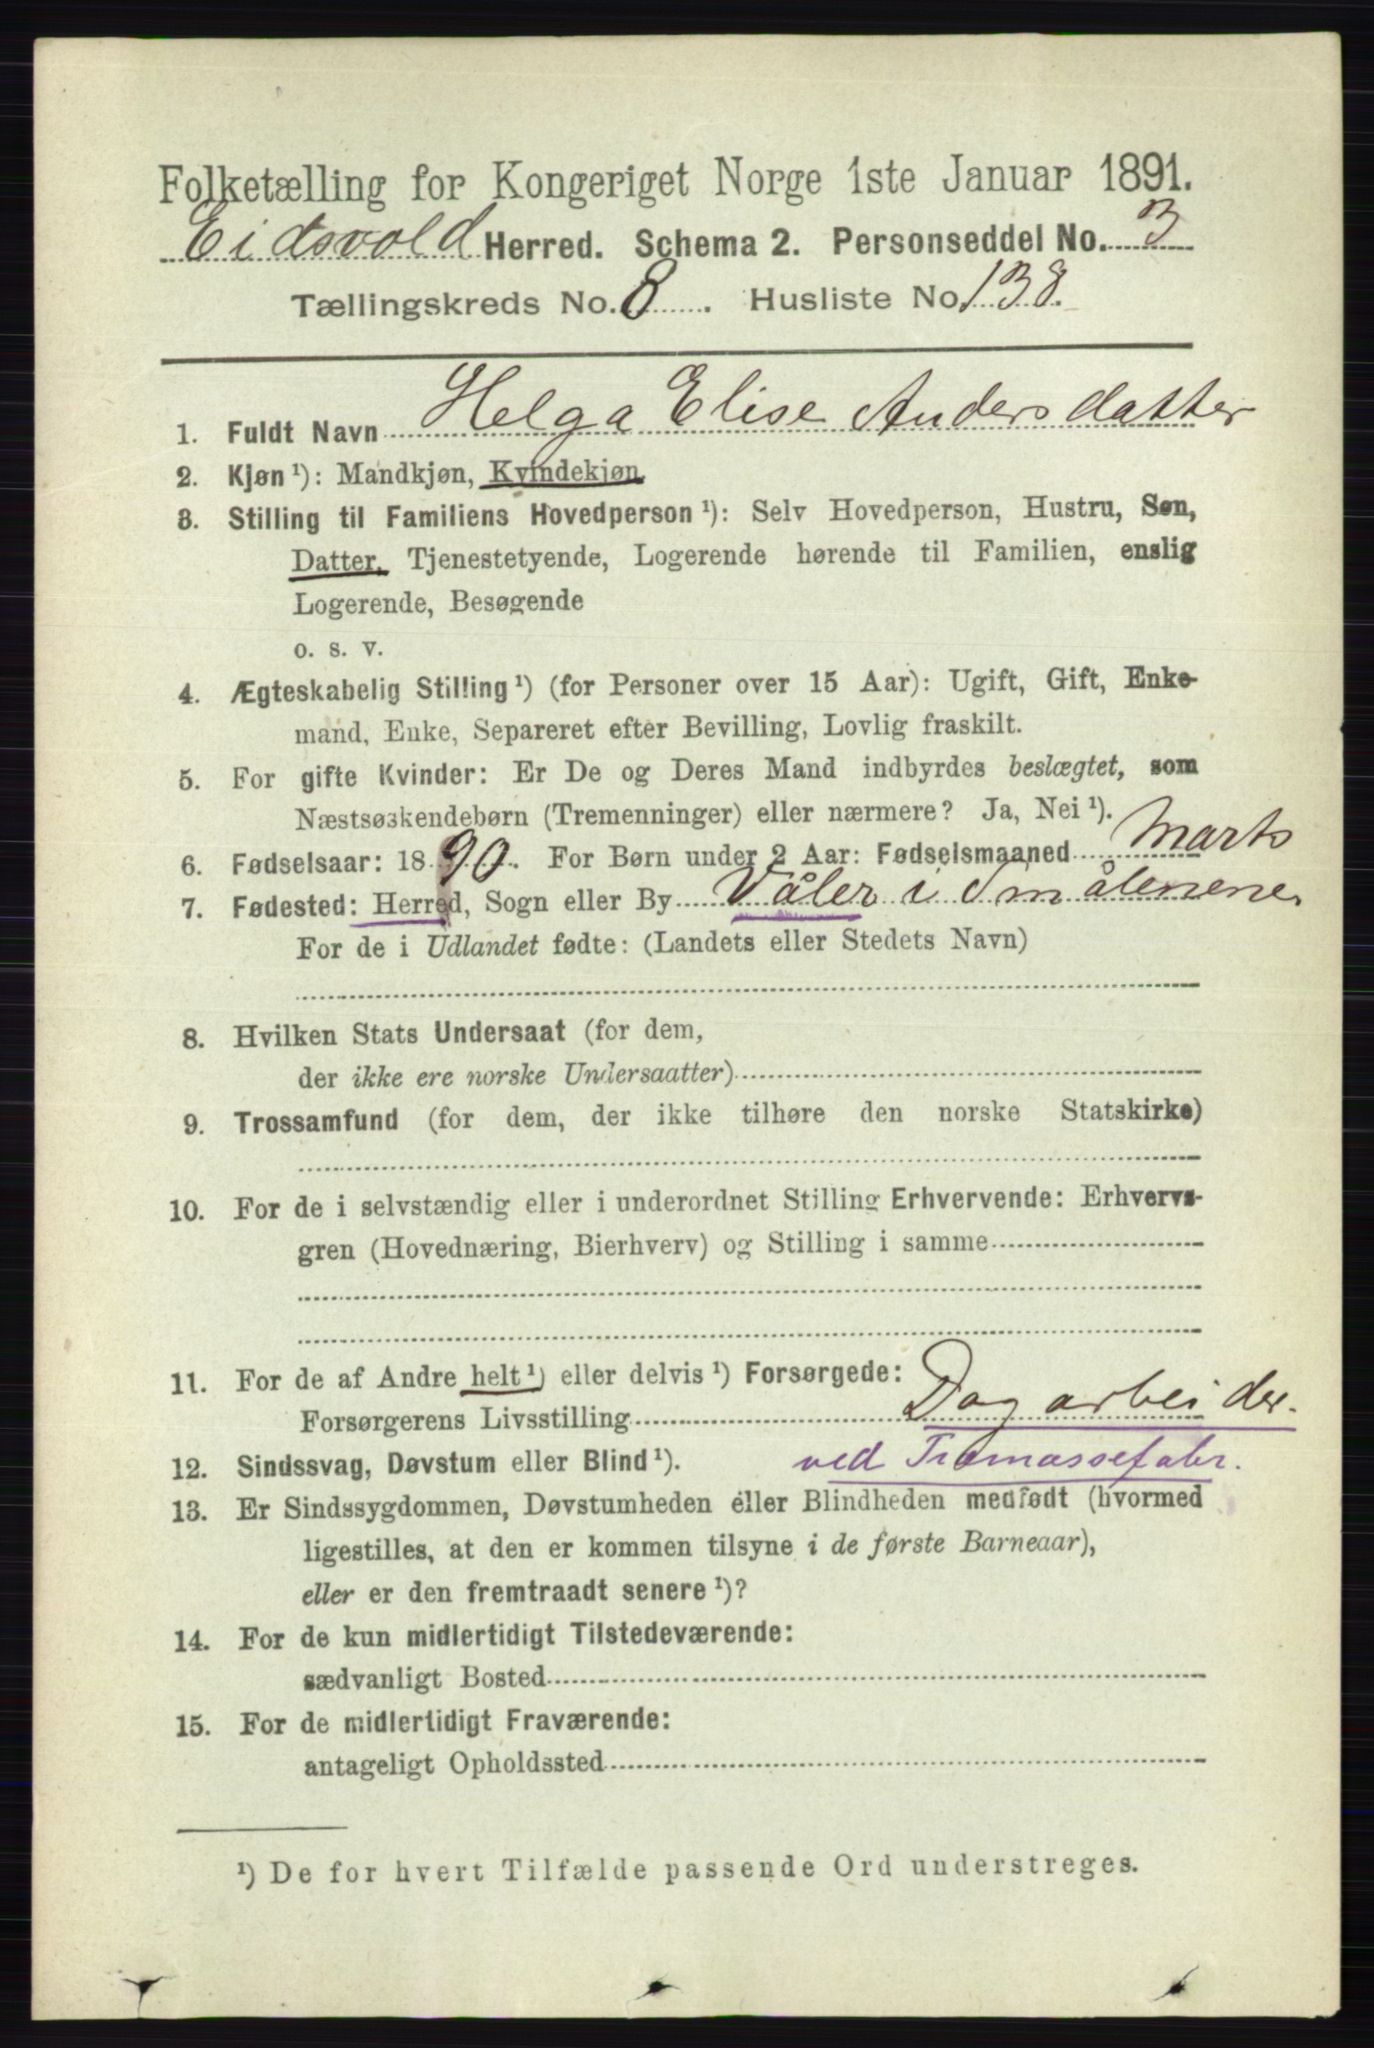 Folketælling for Kongeriget Norge 1ste Januar 1891.
Eidsvold Herred. Schema 2. Personseddel No. 3
Tællingskreds No. 8. Husliste No. 138.
1. Fuldt Navn Helga Elise Andersdatter
2. Kjøn ¹): Mandkjøn, Kvindekjøn.
3. Stilling til Familiens Hovedperson ¹): Selv Hovedperson, Hustru, Søn,
Datter, Tjenestetyende, Logerende hørende til Familien, enslig
Logerende, Besøgende
o. s. v.
4. Ægteskabelig Stilling ¹) (for Personer over 15 Aar): Ugift, Gift, Enke-
mand, Enke, Separeret efter Bevilling, Lovlig fraskilt.
5. For gifte Kvinder: Er De og Deres Mand indbyrdes beslægtet, som
Næstsøskendebørn (Tremenninger) eller nærmere? Ja, Nei ¹).
6. Fødselsaar: 1890. For Børn under 2 Aar: Fødselsmaaned Marts
7. Fødested: Herred, Sogn eller By Våler i Smålenene.
For de i Udlandet fødte: (Landets eller Stedets Navn)
8. Hvilken Stats Undersaat (for dem,
der ikke ere norske Undersaatter)
9. Trossamfund (for dem, der ikke tilhøre den norske Statskirke)
10. For de i selvstændig eller i underordnet Stilling Erhvervende: Erhvervs-
gren (Hovednæring, Bierhverv) og Stilling i samme
11. For de af Andre helt ¹) eller delvis ¹) Forsørgede:
Forsørgerens Livsstilling Dagarbeider.
12. Sindssvag, Døvstum eller Blind ¹). ved Træmassefabr.
13. Er Sindssygdommen, Døvstumheden eller Blindheden medfødt (hvormed
ligestilles, at den er kommen tilsyne i de første Barneaar),
eller er den fremtraadt senere ¹)?
14. For de kun midlertidigt Tilstedeværende:
sædvanligt Bosted
15. For de midlertidigt Fraværende:
antageligt Opholdssted
¹) De for hvert Tilfælde passende Ord understreges.